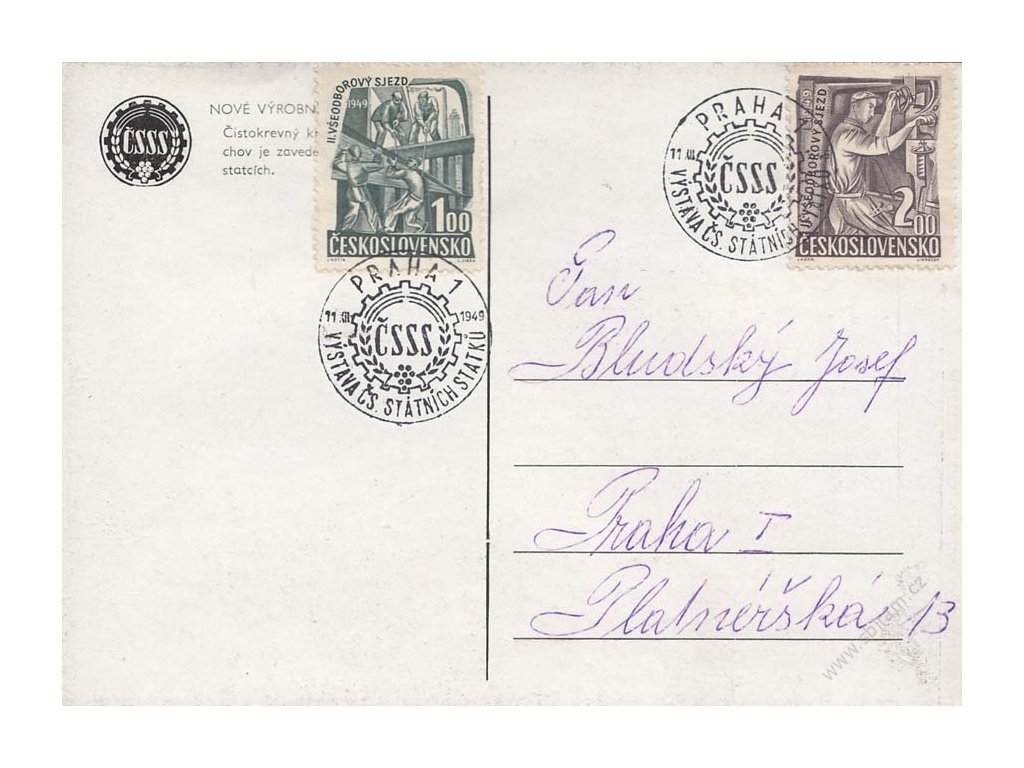 ČSSS
NOVÉ VÝROBN
Čistokrevný k
chov je zavede
statcích.
II. VŠEODBOROVÝ SJEZD
1949
1.00
ČESKOSLOVENSKO
PRAHA 1
11 XII 1949
ČSSS
VÝSTAVA ČS. STÁTNÍCH STATKŮ
PRAHA 1
11 XII
ČSSS
VÝSTAVA ČS. STÁTNÍCH
1949
II. VŠEODBOROVÝ SJEZD
2.00
ČESKOSLOVENSKO
Pan
Bludský Josef
Praha I
Platnéřská 13
www.sbiram.cz